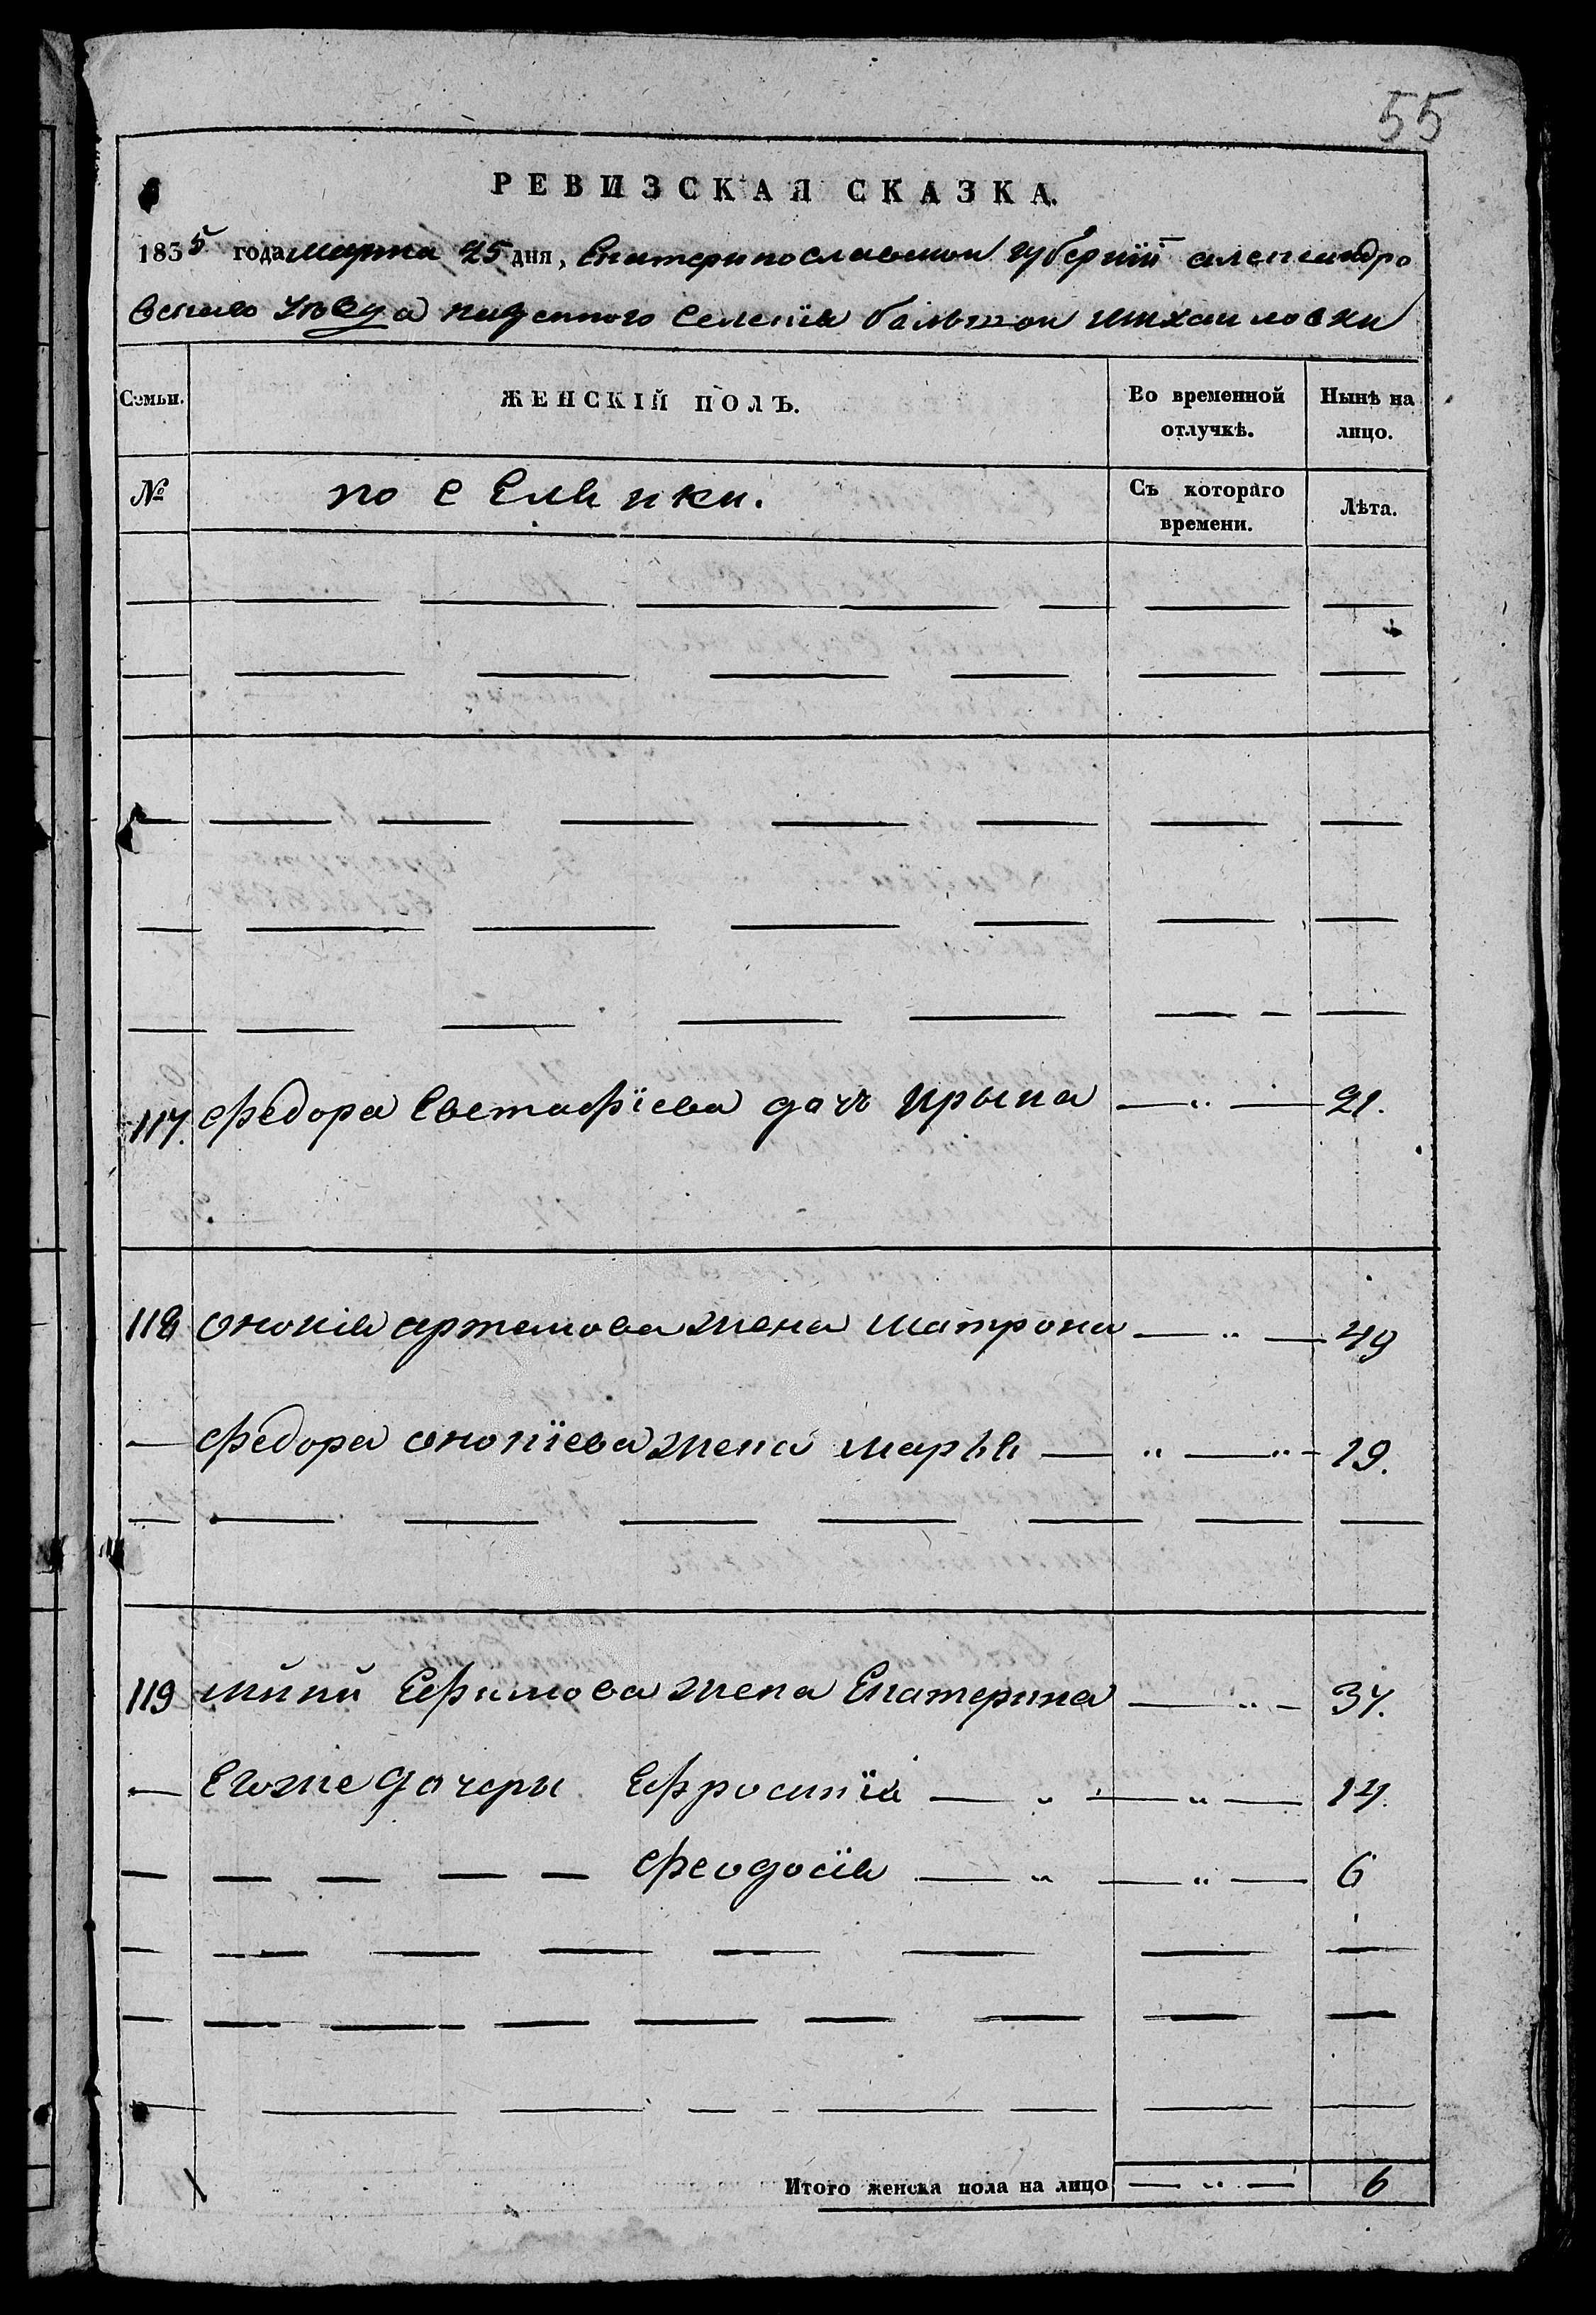 55
РЕВИЗСКАЯ СКАЗКА.
1835 года марта 25 дня, Екатеринославской губернїи александро
вскаго уѣзда казенного селенїя балшои михаиловки
Семьи. ЖЕНСКІЙ ПОЛЪ. Во временной отлучкѣ. Нынѣ на лицо.
№ поселянки. Съ котораго времени. Лѣта.
117. Федора Евстафїева дочь Ирына — " — 21.
118 Онопїя артемова жена матрона — " — 49
— Федора онопїева жена марья — " — " — 19.
119 Епатерина — " — 37.
— Егоже дочеры Ефросинїя — " — " — 14.
— — — — — Феодосїя — " — " — 6
Итого женска пола на лицо — " — 6